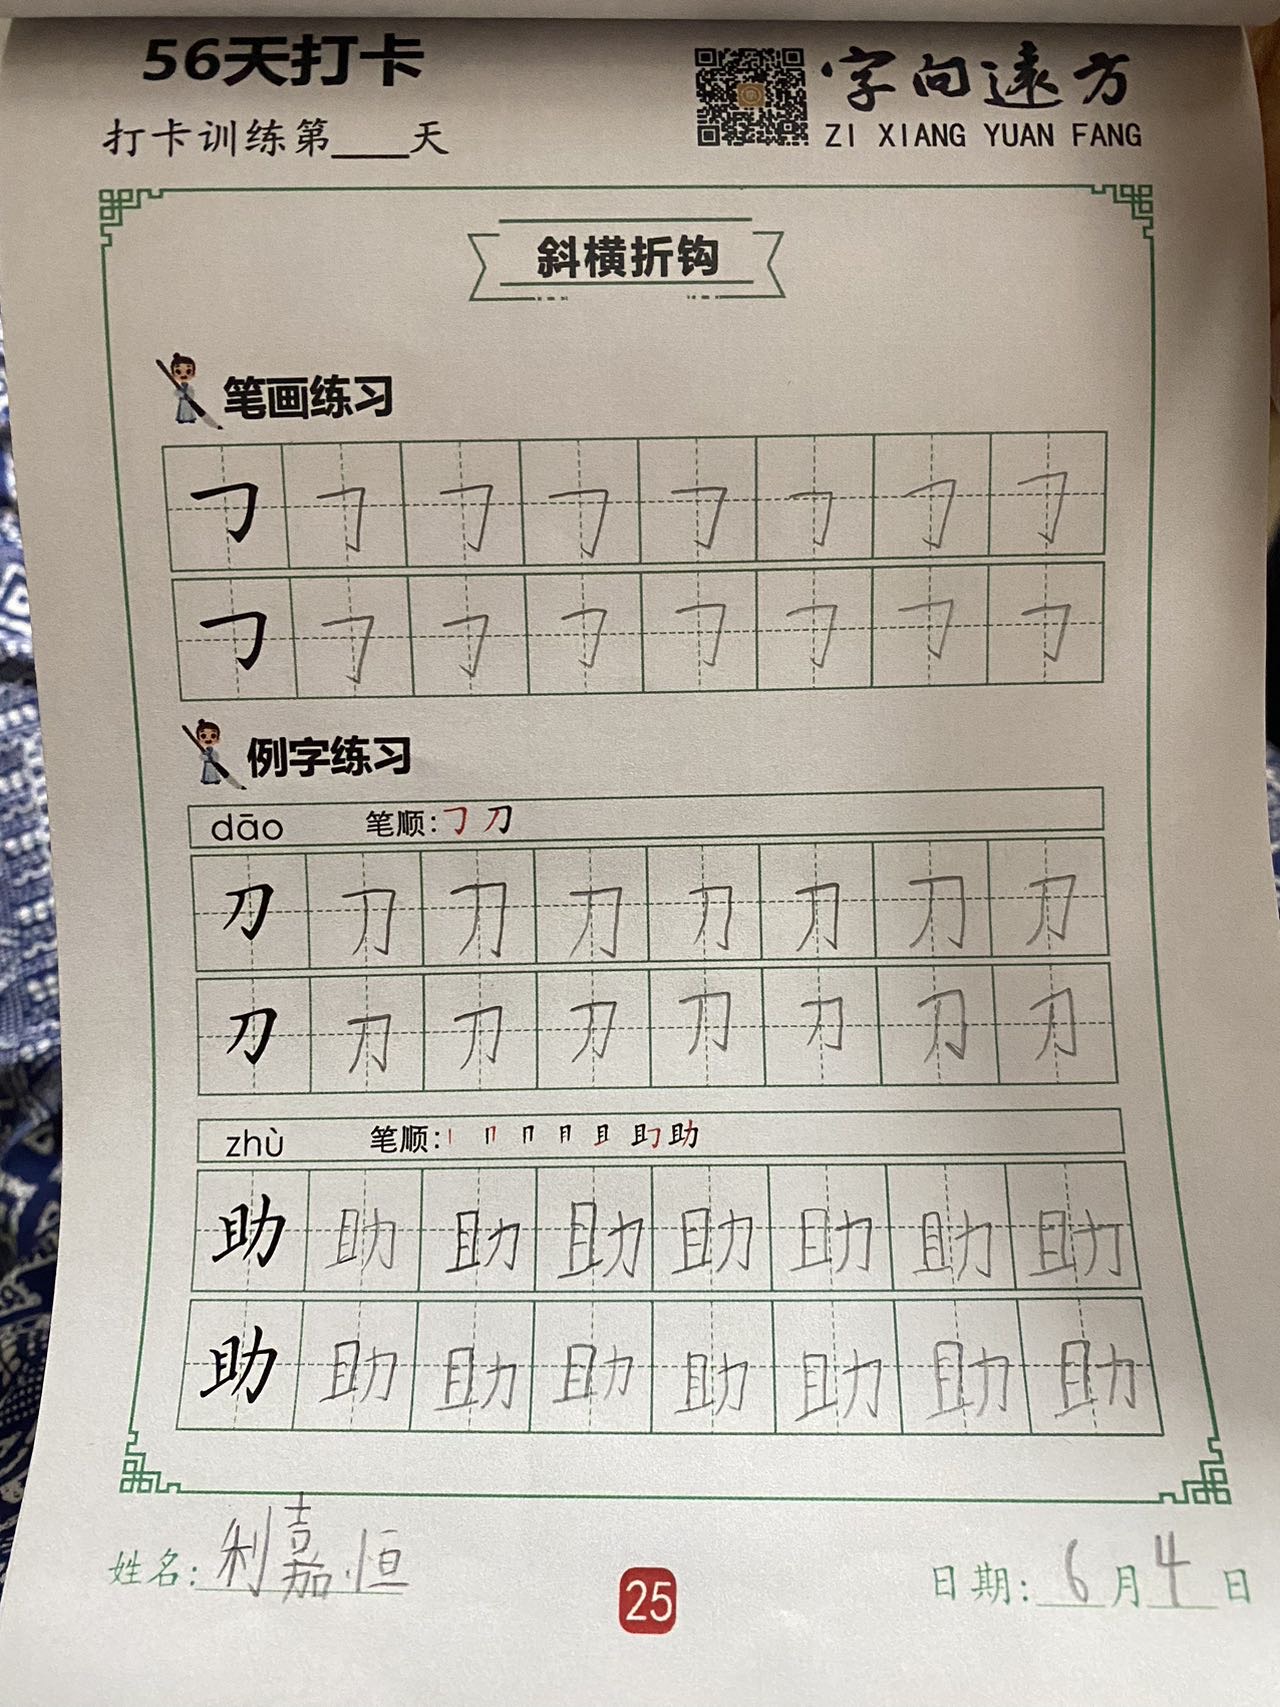 56天打卡
字向远方
打卡训练第____天
ZI XIANG YUAN FANG
斜横折钩
笔画练习
㇆ ㇆ ㇆ ㇆ ㇆ ㇆ ㇆ ㇆
㇆ ㇆ ㇆ ㇆ ㇆ ㇆ ㇆ ㇆
例字练习
dāo 笔顺:㇆ 刀
刀 刀 刀 刀 刀 刀 刀 刀
刀 刀 刀 刀 刀 刀 刀 刀
zhù 笔顺:丨 冂 冂 月 且 助 助
助 助 助 助 助 助 助 助
助 助 助 助 助 助 助 助
姓名:利嘉恒
25
日期:6月4日